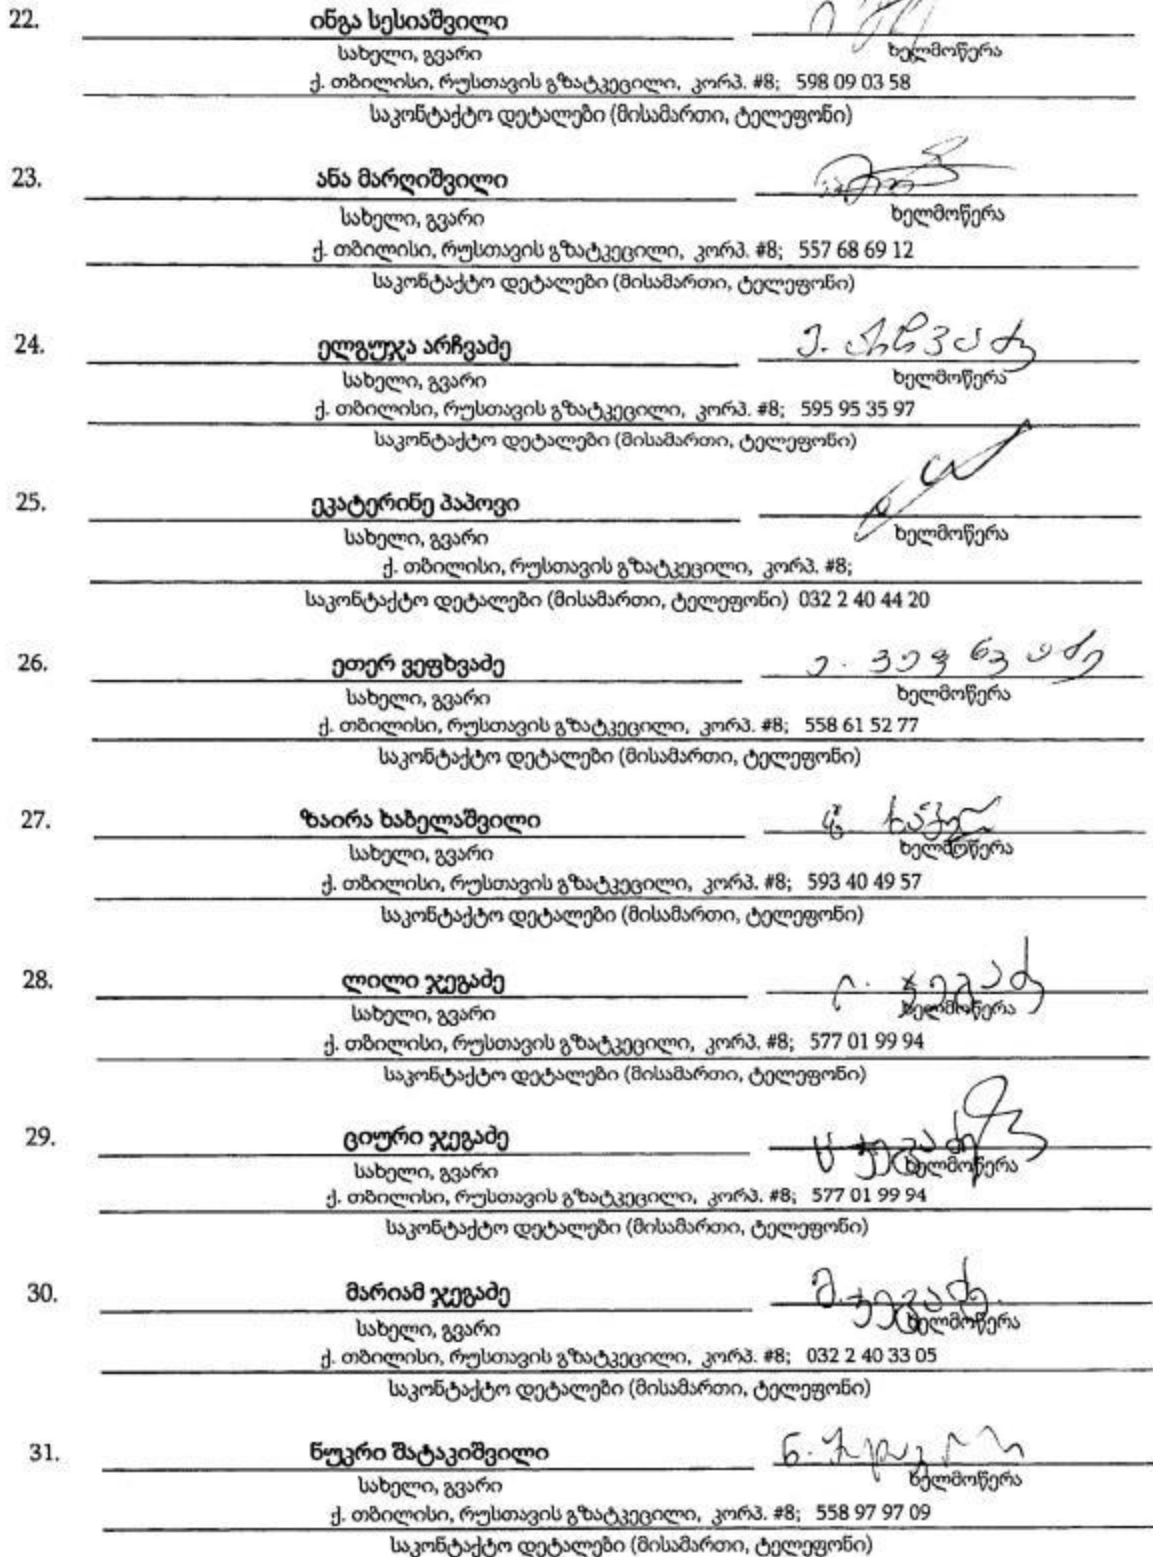 22. ინგა სესიაშვილი
სახელი, გვარი ხელმოწერა
ქ. თბილისი, რუსთავის გზატკეცილი, კორპ. #8; 598 09 03 58
საკონტაქტო დეტალები (მისამართი, ტელეფონი)
23. ანა მარღიშვილი
სახელი, გვარი ხელმოწერა
ქ. თბილისი, რუსთავის გზატკეცილი, კორპ. #8; 557 68 69 12
საკონტაქტო დეტალები (მისამართი, ტელეფონი)
24. ელგუჯა არჩვაძე ე. არჩვაძე
სახელი, გვარი ხელმოწერა
ქ. თბილისი, რუსთავის გზატკეცილი, კორპ. #8; 595 95 35 97
საკონტაქტო დეტალები (მისამართი, ტელეფონი)
25. ეკატერინე პაპოვი
სახელი, გვარი ხელმოწერა
ქ. თბილისი, რუსთავის გზატკეცილი, კორპ. #8;
საკონტაქტო დეტალები (მისამართი, ტელეფონი) 032 2 40 44 20
26. ეთერ ვეფხვაძე ე. ვეფხვაძე
სახელი, გვარი ხელმოწერა
ქ. თბილისი, რუსთავის გზატკეცილი, კორპ. #8; 558 61 52 77
საკონტაქტო დეტალები (მისამართი, ტელეფონი)
27. ზაირა ხაბელაშვილი
სახელი, გვარი ხელმოწერა
ქ. თბილისი, რუსთავის გზატკეცილი, კორპ. #8; 593 40 49 57
საკონტაქტო დეტალები (მისამართი, ტელეფონი)
28. ლილი ჯეგაძე ლ. ჯეგაძე
სახელი, გვარი ხელმოწერა
ქ. თბილისი, რუსთავის გზატკეცილი, კორპ. #8; 577 01 99 94
საკონტაქტო დეტალები (მისამართი, ტელეფონი)
29. ციური ჯეგაძე ც ჯეგაძე
სახელი, გვარი ხელმოწერა
ქ. თბილისი, რუსთავის გზატკეცილი, კორპ. #8; 577 01 99 94
საკონტაქტო დეტალები (მისამართი, ტელეფონი)
30. მარიამ ჯეგაძე მ. ჯეგაძე.
სახელი, გვარი ხელმოწერა
ქ. თბილისი, რუსთავის გზატკეცილი, კორპ. #8; 032 2 40 33 05
საკონტაქტო დეტალები (მისამართი, ტელეფონი)
31. ნუკრი შატაკიშვილი
სახელი, გვარი ხელმოწერა
ქ. თბილისი, რუსთავის გზატკეცილი, კორპ. #8; 558 97 97 09
საკონტაქტო დეტალები (მისამართი, ტელეფონი)